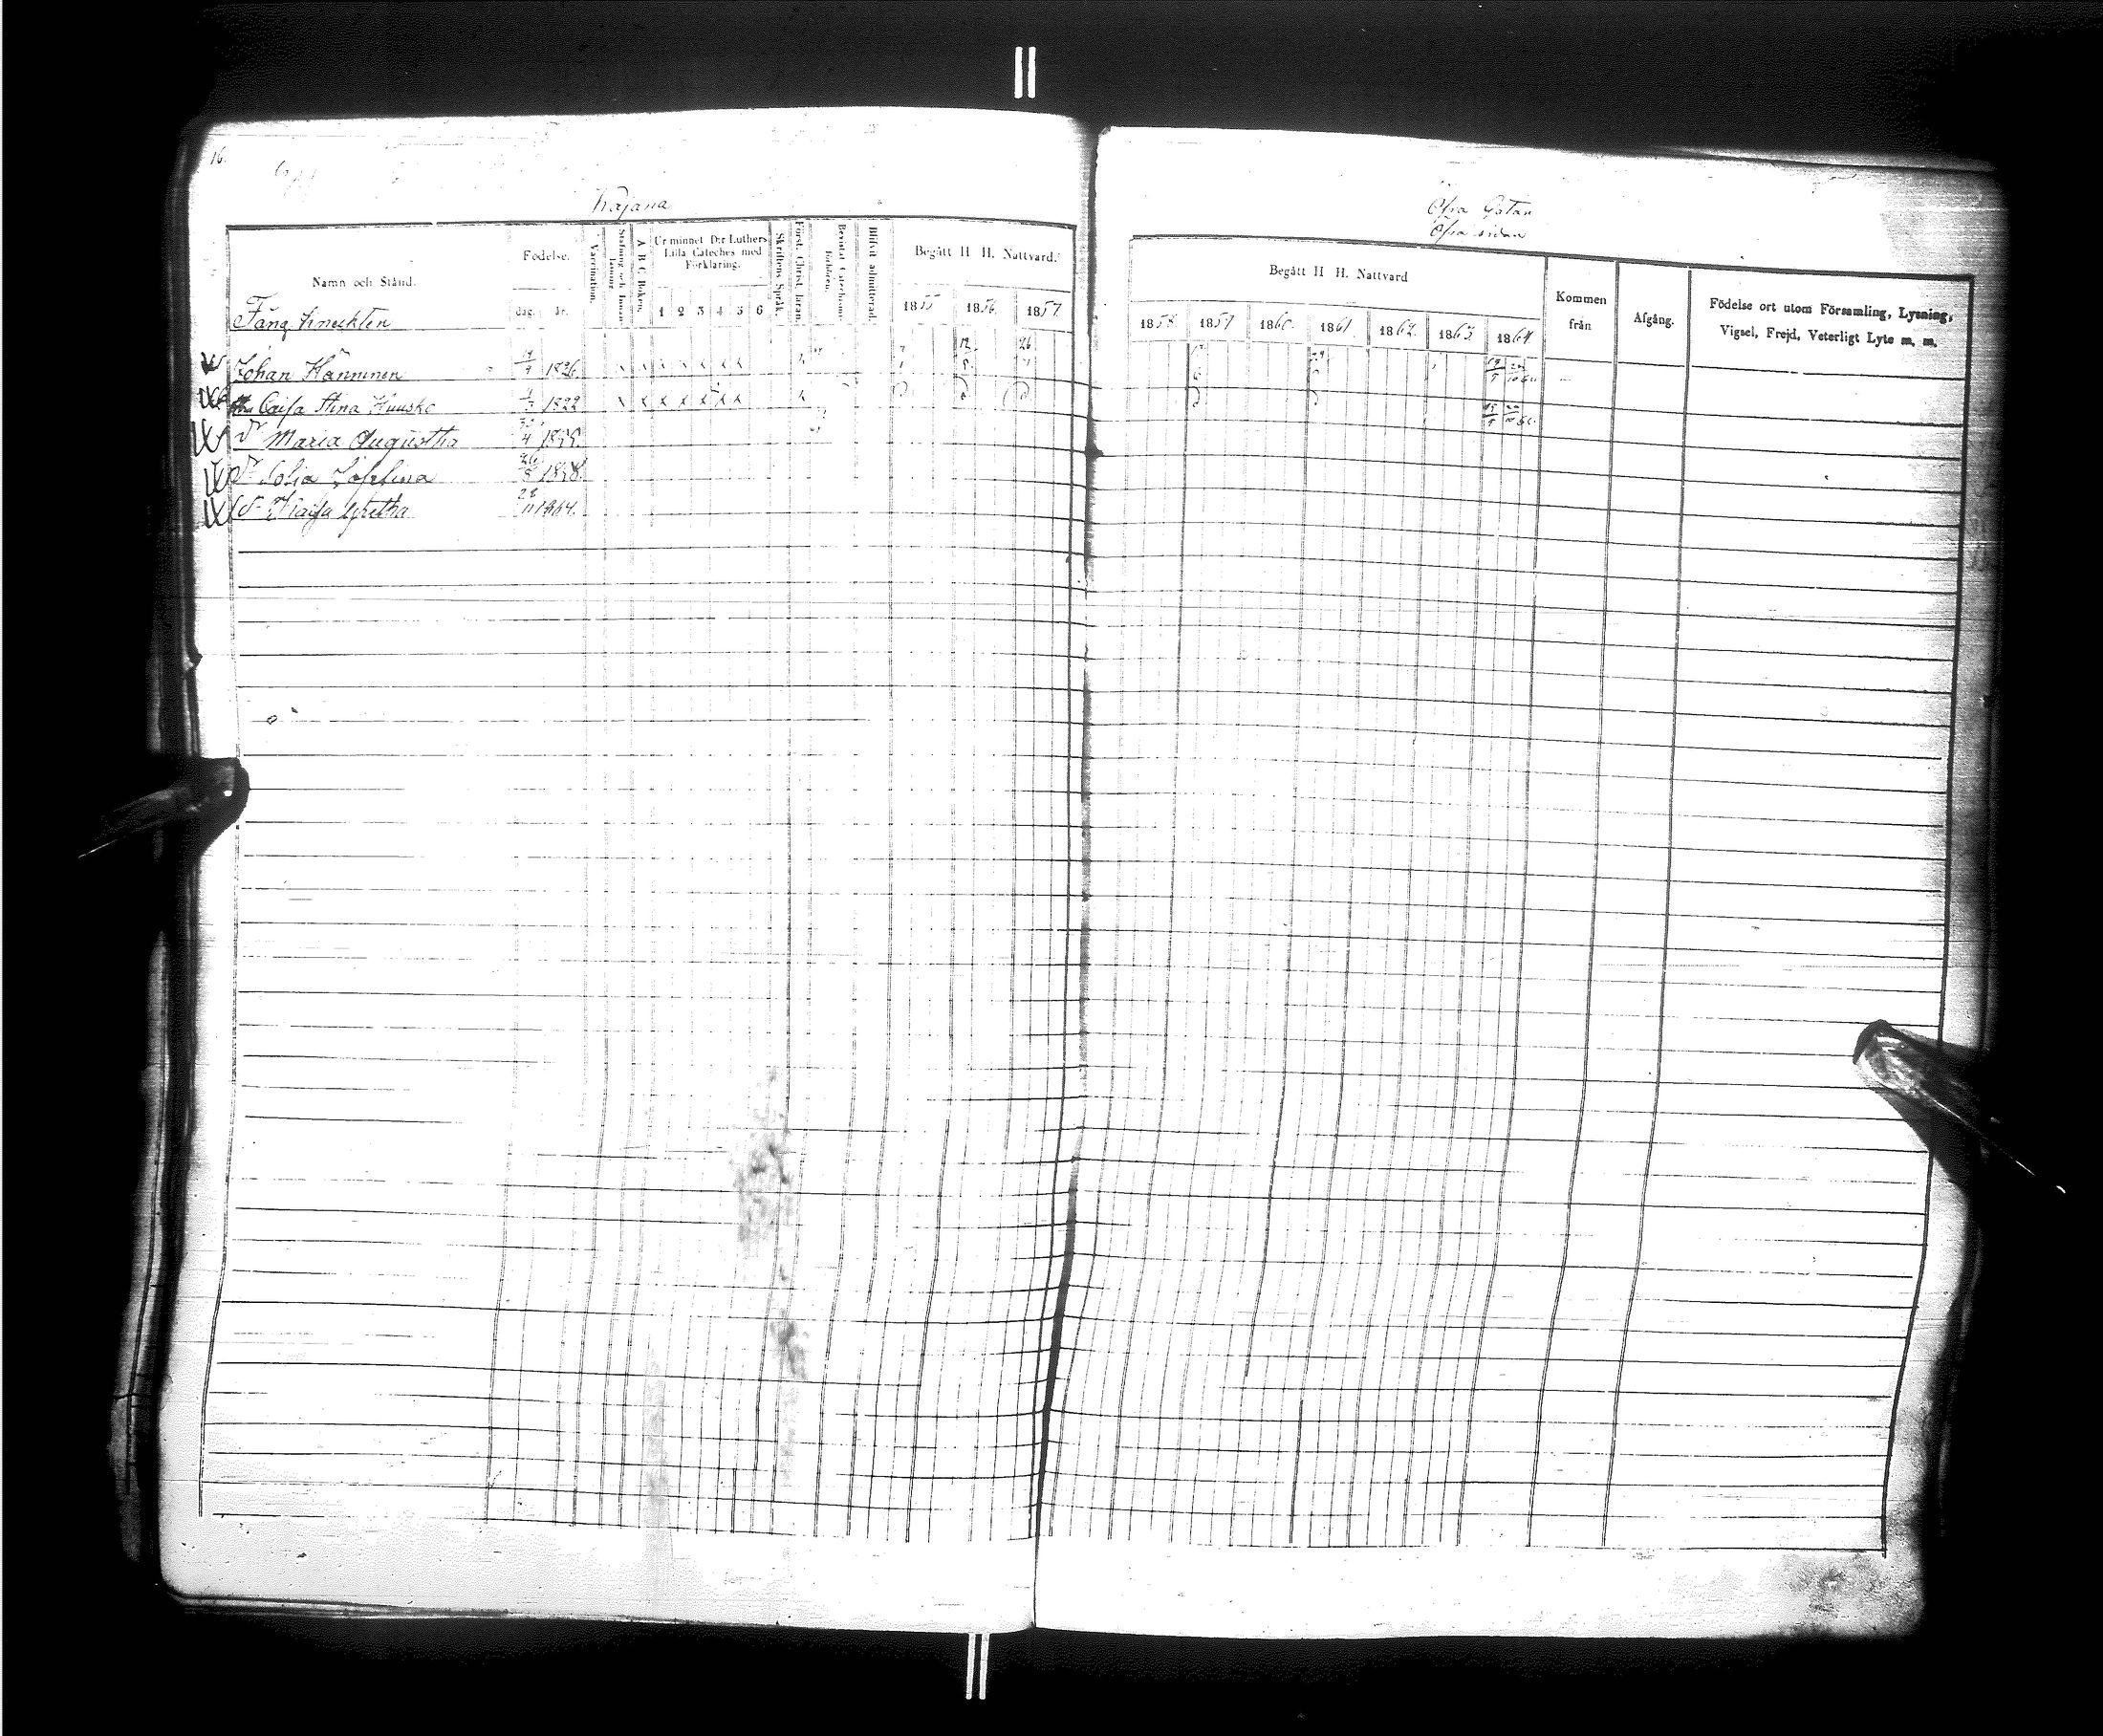 16.
Kajana
Namn och Stånd.
Födelse.
dag. år.
Vaccination.
Stafning och Innanläsning.
A B C Boken.
Ur minnet D:r Luthers
Lilla Cateches med
Förklaring.
1 2 3 4 5 6
Skriftens Språk.
Först. Christ. läran.
Bevistat Catechismi-
förhören.
Blifvit admitterad.
Begått H H. Nattvard.
1855 1856. 1857.
Fång kneckten
Johan Hänninen 1826.
Caisa Stina Kuusko 1822
Dr Maria Augustha 4 1855.
Dr Sofia Josefina 26 1858.
Dr Kaisa Gretha 28 11 1864.
Öfra Gatan
Öfra sidan
Begått H H. Nattvard
1858. 1859 1860. 1861 1862. 1863 1864
Kommen
från
Afgång.
Födelse ort utom Församling, Lysning,
Vigsel, Frejd, Veterligt Lyte m. m.